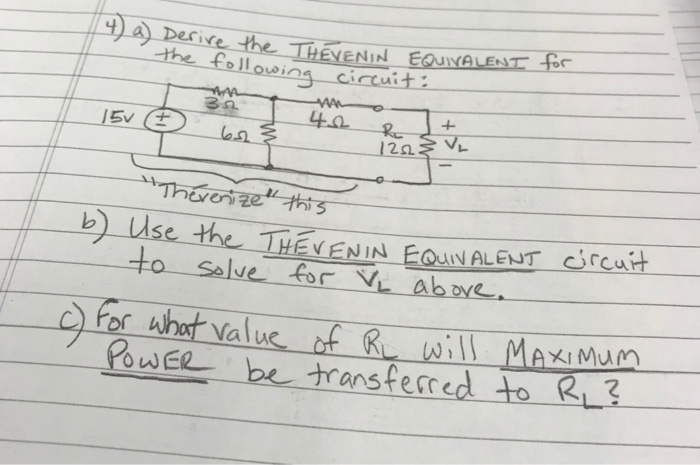 4) a) Derive the THÉVENIN EQUIVALENT for
the following circuit:
3Ω
4Ω
15V
6Ω
RL
12Ω
+
VL
-
"Thévenize" this
b) Use the THÉVENIN EQUIVALENT circuit
to solve for VL above.
c) For what value of RL will MAXIMUM
POWER be transferred to RL?